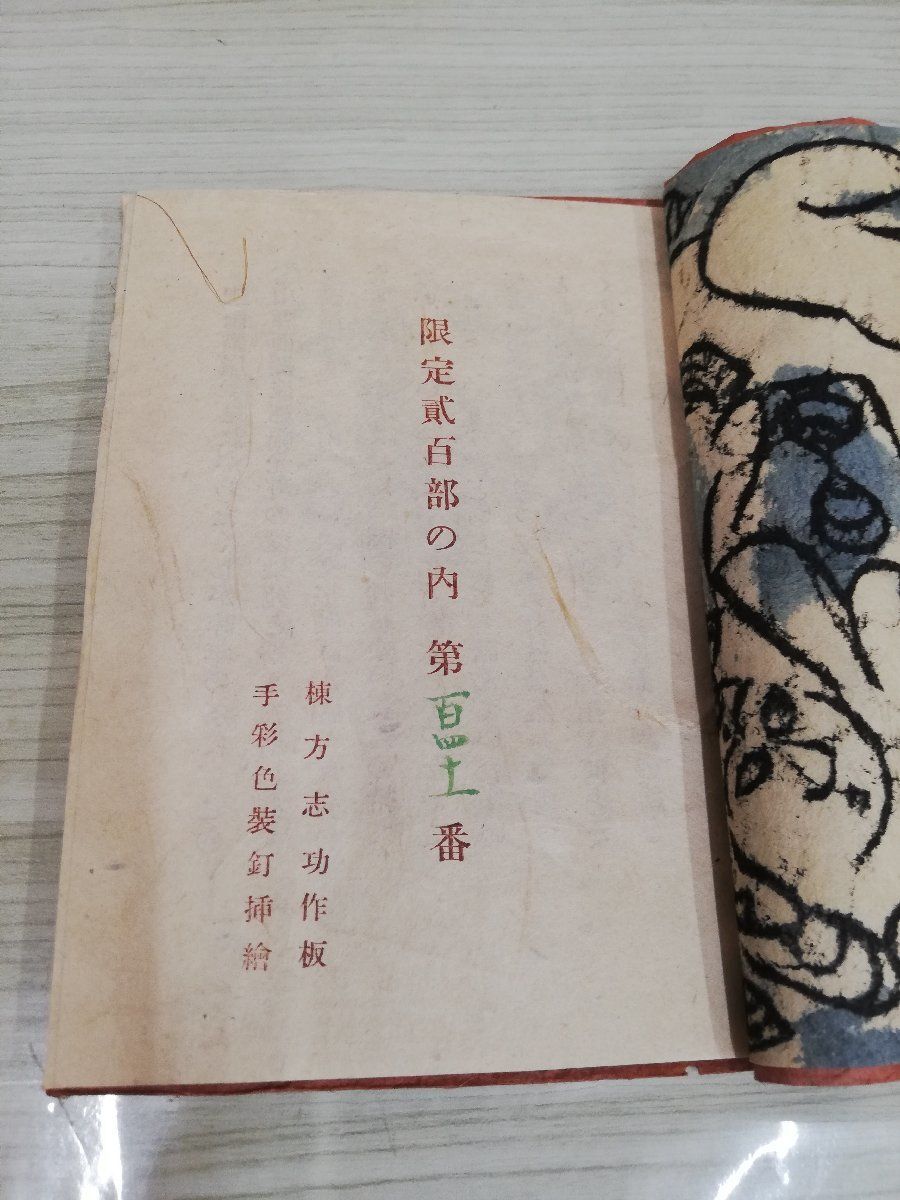 限定貳百部の内 第百四十一番
棟方志功作板
手彩色裝釘揷繪